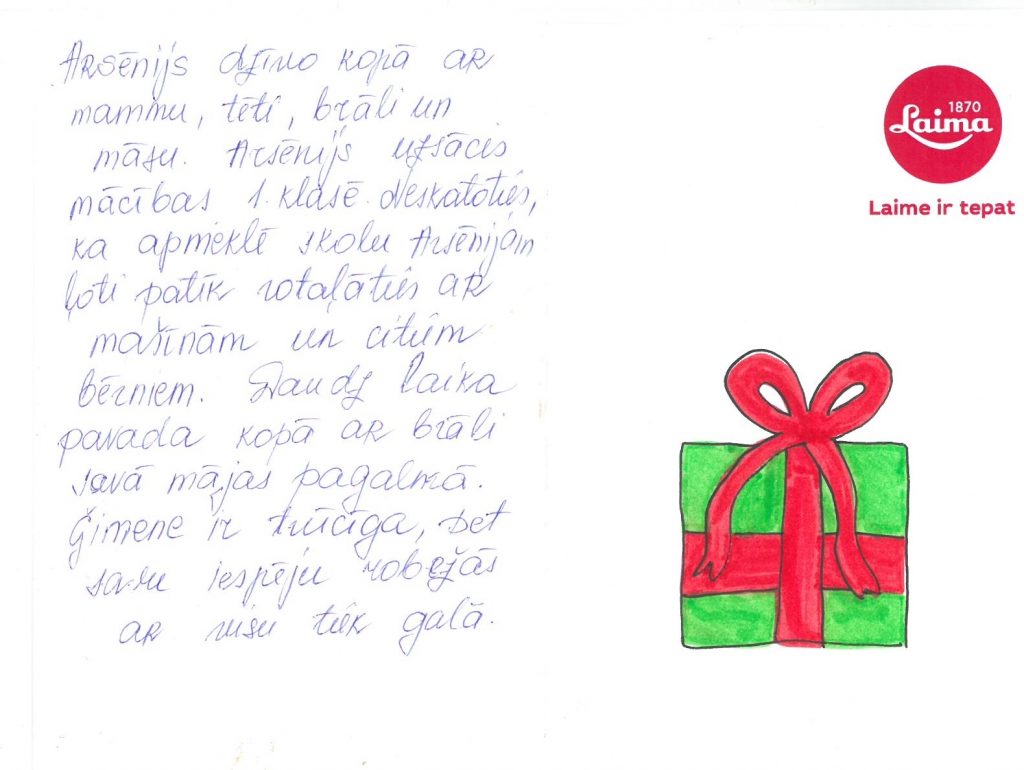 Arsēnijs dzīvo kopā ar
mammu, tēti, brāli un
māsu. Arsēnijs uzsācis
mācības 1. klasē. Neskatoties,
ka apmeklē skolu Arsēnijam
ļoti patīk rotaļāties ar
mašīnām un citiem
bērniem. Daudz laika
pavada kopā ar brāli
savā mājas pagalmā.
Ģimene ir trūcīga, bet
savu iespēju robežās
ar visu tiek galā.
1870
Laima
Laime ir tepat